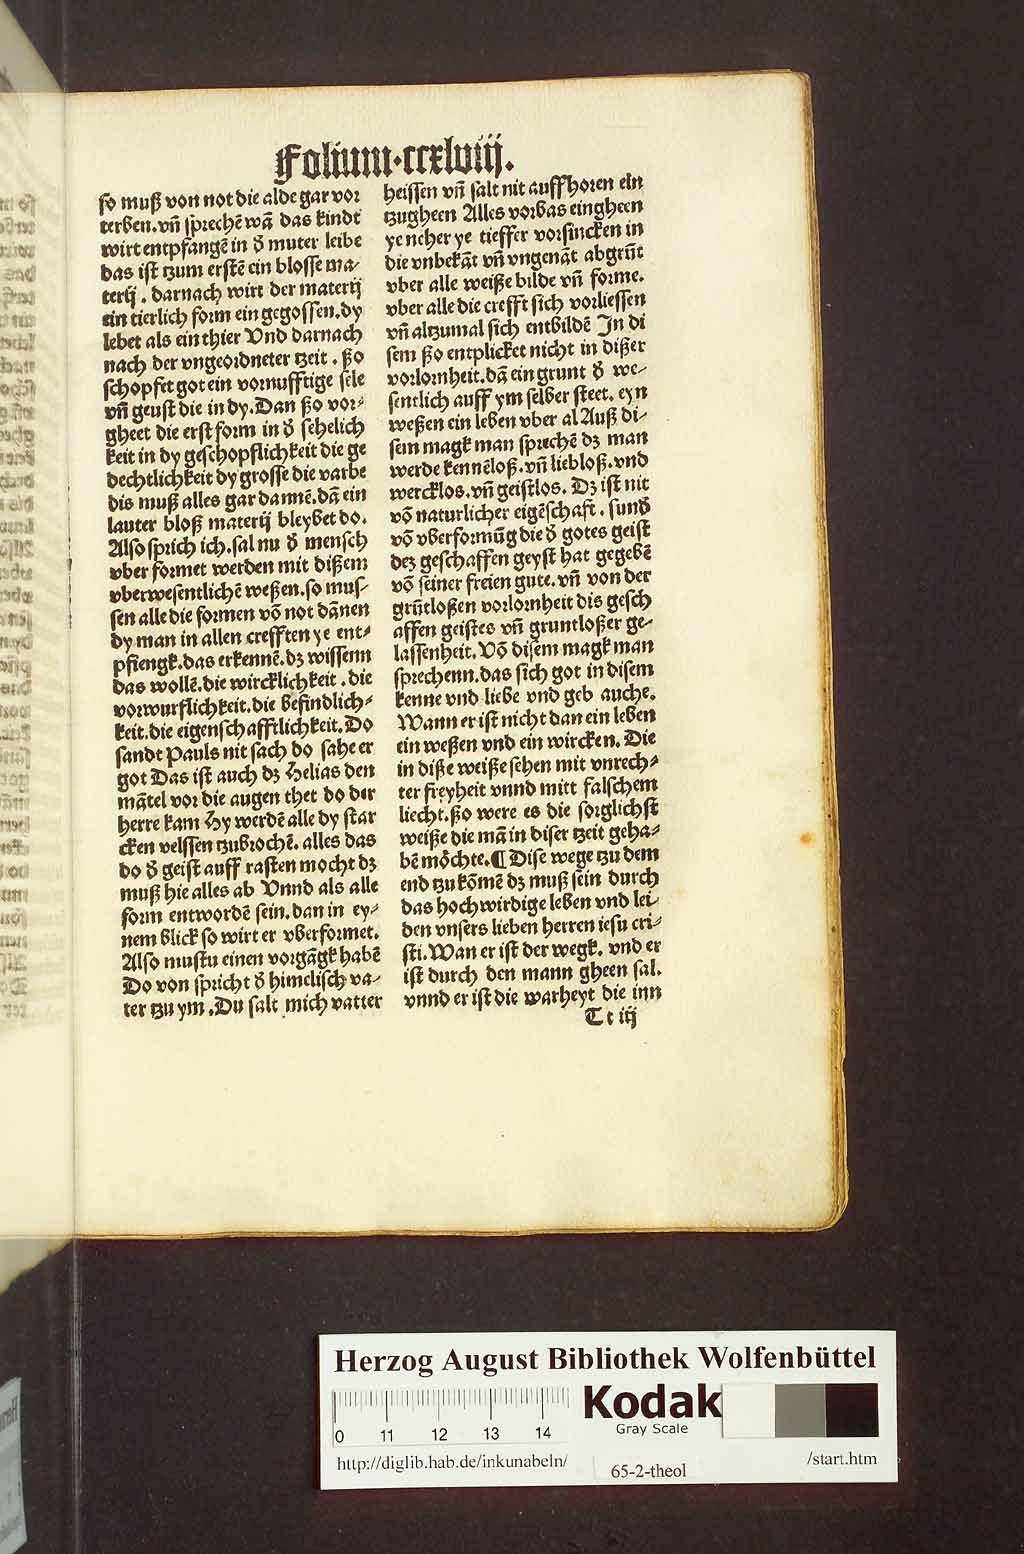 Folium·ccxlviij.
so muß von not die alde gar vor
terben. vñ sprechē wā das kindt
wirt entpfangē in ď muter leibe
das ist tzum erstē ein blosse ma⸗
terij. darnach wirt der materij
ein tierlich form ein gegossen. dy
lebet als ein thier Vnd darnach
nach der vngeordneter tzeit. ßo
schopfet got ein vornufftige sele
vñ geust die in dy. Dan ßo vor⸗
gheet die erst form in ď sehelich
keit in dy geschopflichkeit die ge
dechtlichkeit dy grosse die varbe
dis muß alles gar dannē. dā ein
lauter bloß materij bleybet do.
Also sprich ich. sal nu ď mensch
vber formet werden mit dißem
vberwesentlichē weßen. so mus⸗
sen alle die formen vō not dānen
dy man in allen crefften ye ent⸗
pfiengk. das erkennē. dz wissenn
das wollē. die wircklichkeit. die
vorwurflichkeit. die befindlich⸗
keit. die eigenschafftlichkeit. Do
sandt Pauls nit sach do sahe er
got Das ist auch dz Helias den
mātel vor die augen thet do der
herre kam Hy werdē alle dy star
cken velssen tzubrochē. alles das
do ď geist auff rasten mocht dz
muß hie alles ab Vnnd als alle
form entwordē sein. dan in ey⸗
nem blick so wirt er vberformet.
Also mustu einen vorgāgk habē
Do von spricht ď himelisch va⸗
ter tzu ym. Du salt mich vatter
heissen vñ salt nit auffhoren ein
tzugheen Alles vorbas eingheen
ye neher ye tieffer vorsincken in
die vnbekāt vñ vngenāt abgrūt
vber alle weiße bilde vñ forme.
vber alle die crefft sich vorliessen
vñ altzumal sich entbildē In di
sem ßo entplicket nicht in dißer
vorlornheit. dā ein grunt ď we⸗
sentlich auff ym selber steet. eyn
weßen ein leben vber al Auß di⸗
sem magk man sprechē dz man
werde kennēloß. vñ liebloß. vnd
wercklos. vñ geistlos. Dz ist nit
vō naturlicher eigēschaft. sunď
vō vberformūg die ď gotes geist
dez geschaffen geyst hat gegebē
vō seiner freien gute. vñ von der
grūtloßen vorlornheit dis gesch
affen geistes vñ gruntloßer ge⸗
lassenheit. Vō disem magk man
sprechenn. das sich got in disem
kenne vnd liebe vnd geb auche.
Wann er ist nicht dan ein leben
ein weßen vnd ein wircken. Die
in diße weiße sehen mit vnrech⸗
ter freyheit vnnd mitt falschem
liecht. ßo were es die sorglichst
weiße die mā in diser tzeit geha⸗
bē möchte. ¶ Dise wege tzu dem
end tzu kōmē dz muß sein durch
das hochwirdige leben vnd lei⸗
den vnsers lieben herren iesu cri⸗
sti. Wan er ist der wegk. vnd er
ist durch den mann gheen sal.
vnnd er ist die warheyt die inn
Tt iij
Herzog August Bibliothek Wolfenbüttel
Kodak
Gray Scale
0 11 12 13 14
http://diglib.hab.de/inkunabeln/
65-2-theol
/start.htm